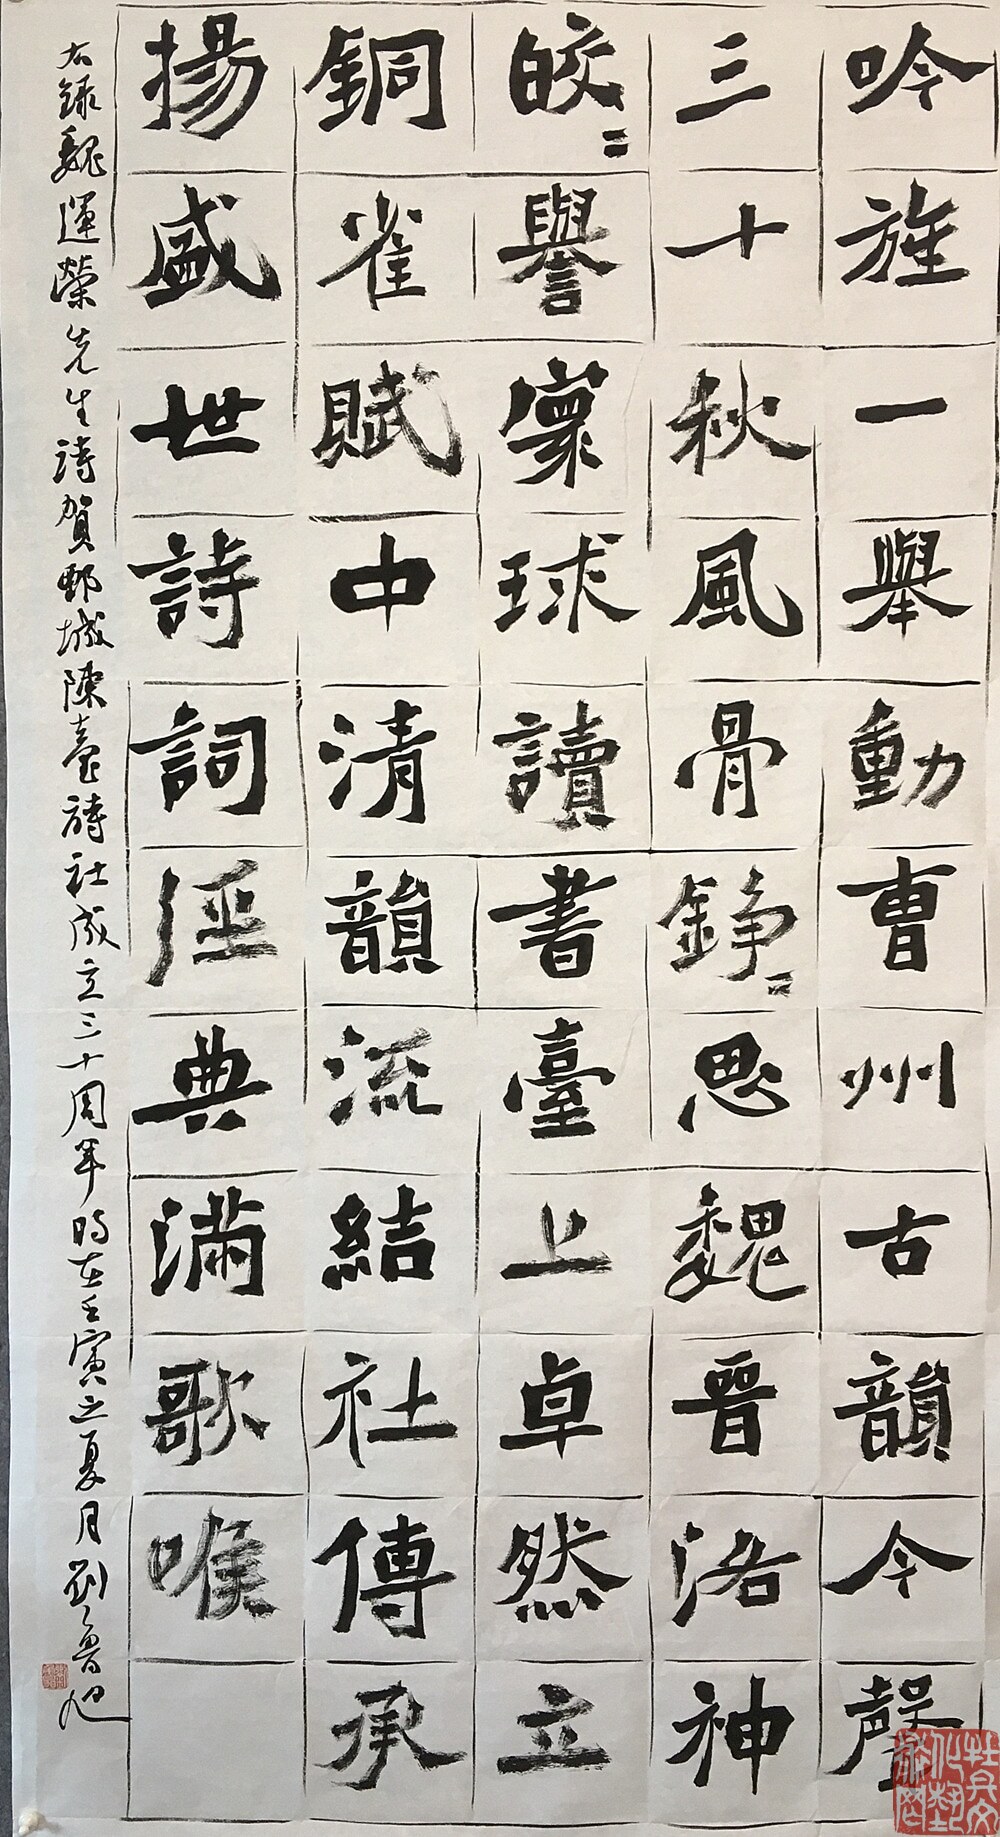 吟旌一舉動曹州古韻今聲
三十秋風骨錚〻思魏晉洛神
皎〻譽寰球讀書臺上卓然立
銅雀賦中清韻流結社傳承
揚盛世詩詞經典滿歌喉
右錄魏運榮先生詩賀鄄城陳臺詩社成立三十周年時在壬寅之夏月劉魯旭